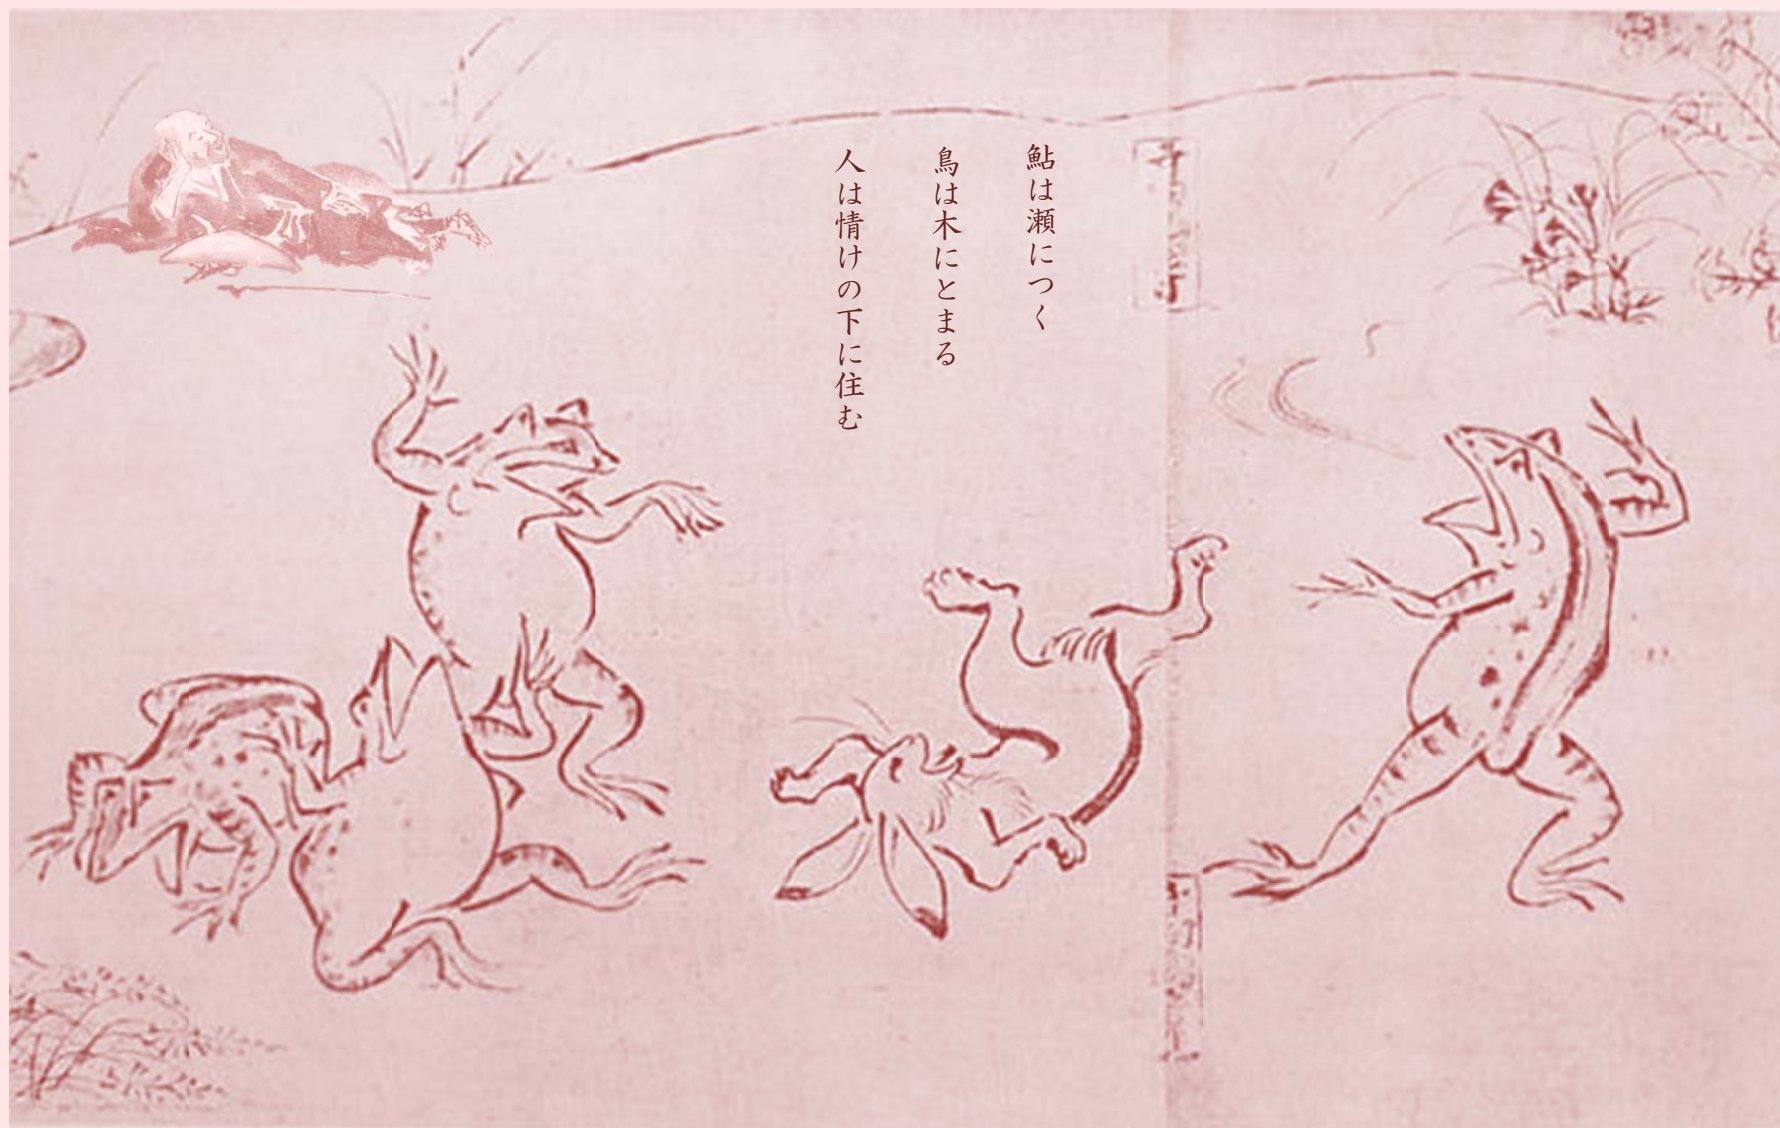 鮎は瀬につく
鳥は木にとまる
人は情けの下に住む